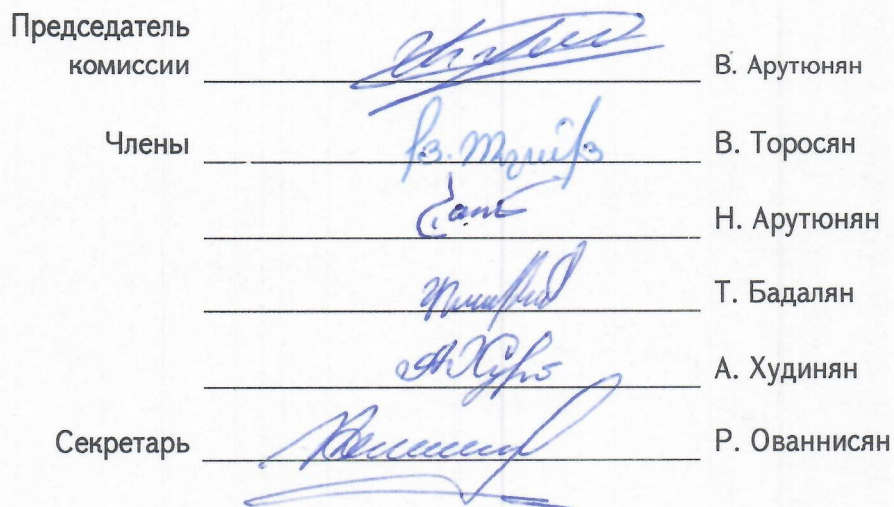 Председатель
комиссии В. Арутюнян
Члены В. Торосян
Н. Арутюнян
Т. Бадалян
А. Худинян
Секретарь Р. Ованнисян